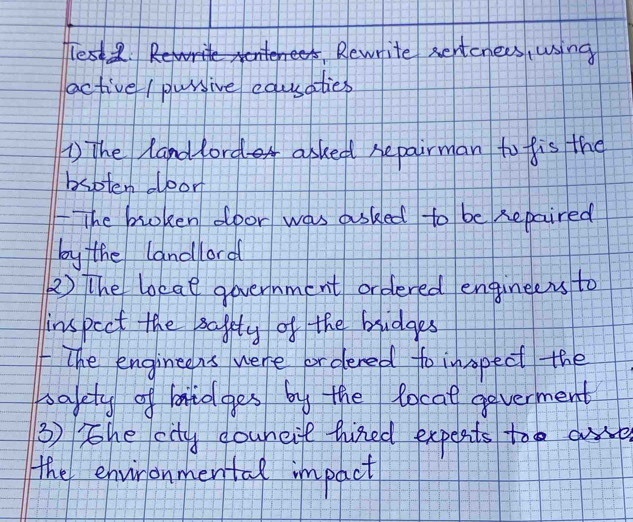 Test 2. Rewrite sentences, Rewrite sentences, using
active / passive causaties
1) The landlord asked repairman to fis the
broten door
- The broken door was asked to be repaired
by the landlord
2) The local government ordered engineers to
inspect the safety of the bridges
- The engineers were ordered to inspect the
safety of bridges by the local goverment
3) The city council hired experts to asses
the environmental impact